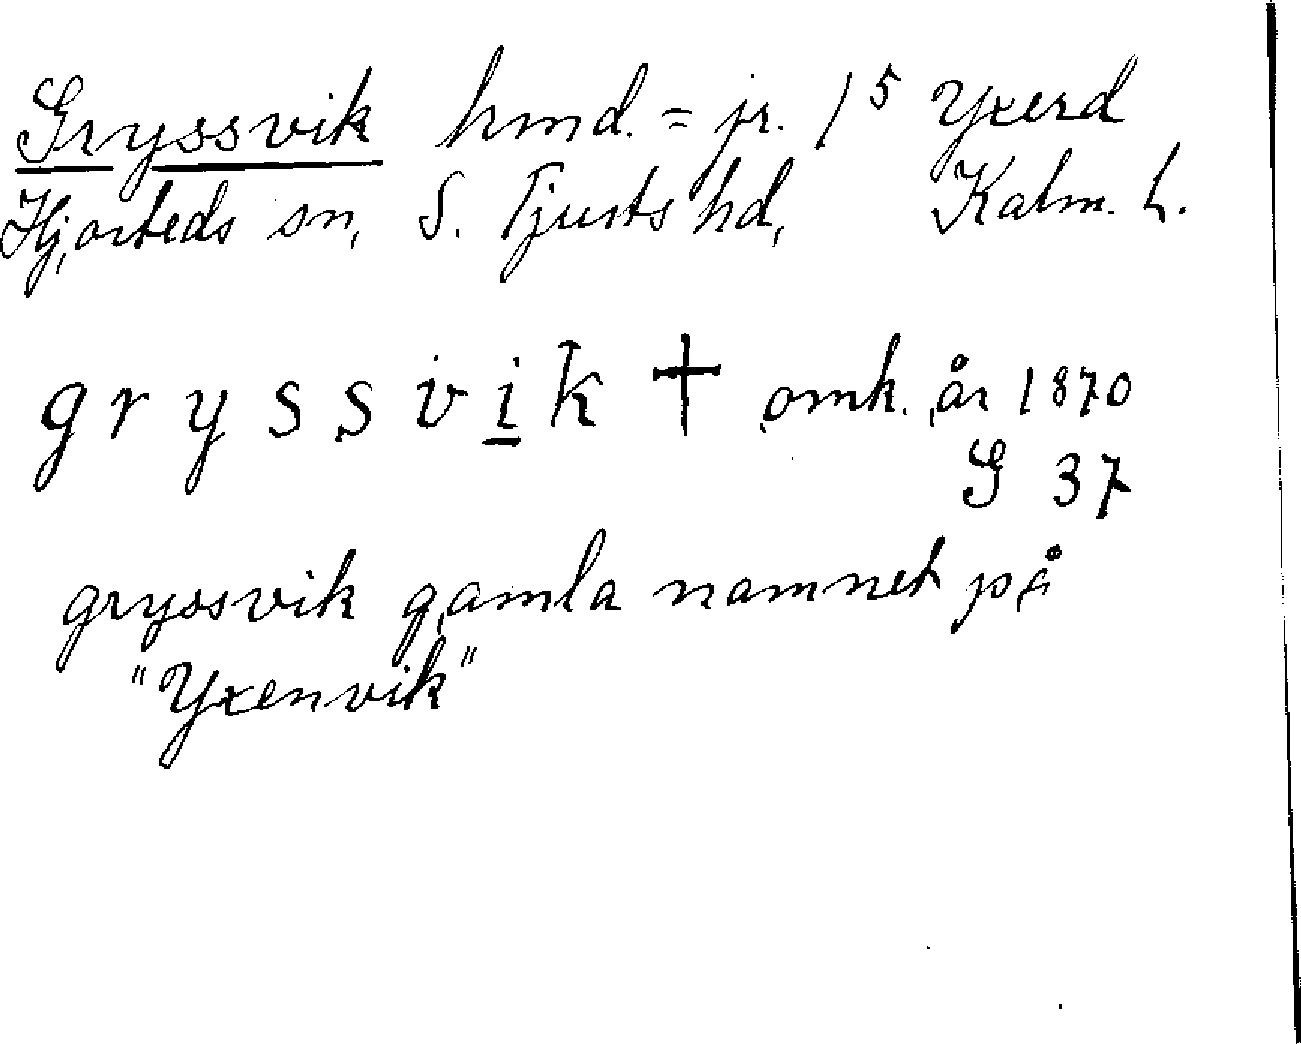 Gryssvik hmd. = jr. 1⁵ Yxerd
Hjorteds sn, S. Tjusts hd, Kalm. L.
gryssvik † omk. år 1870
G 37
gryssvik gamla namnet på
"Yxenvik"